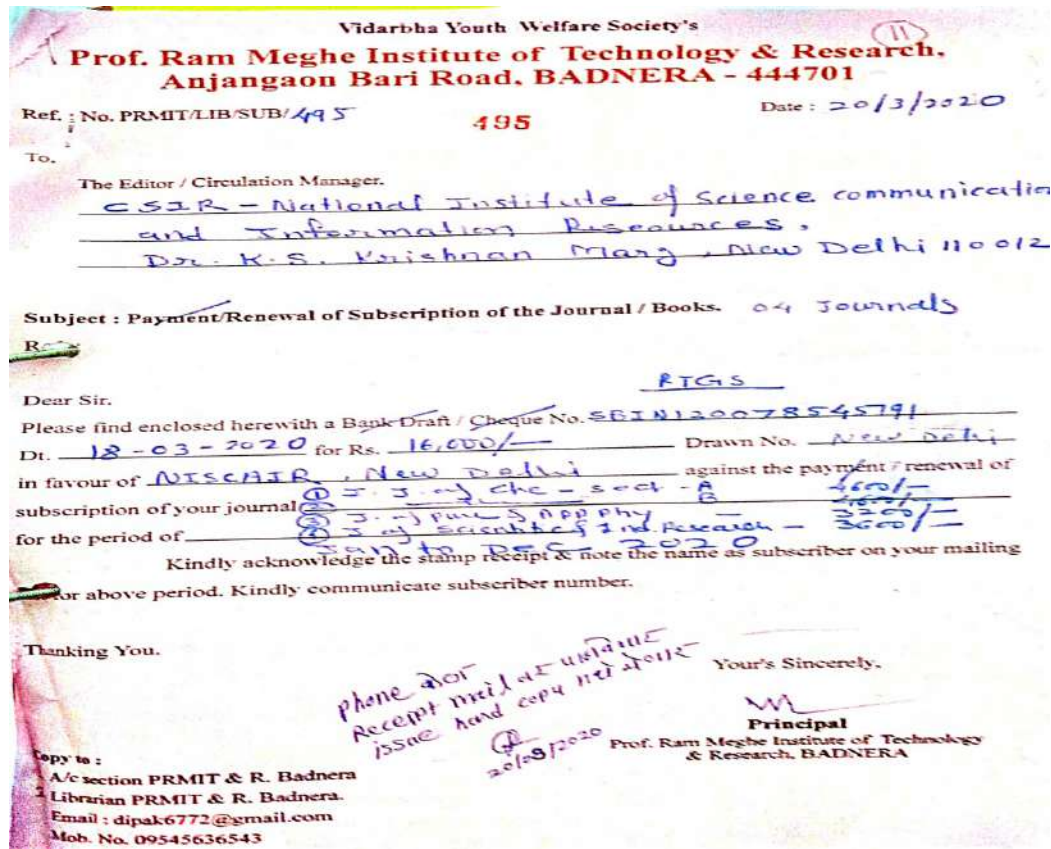 Vidarbha Youth Welfare Society's
11
Prof. Ram Meghe Institute of Technology & Research,
Anjangaon Bari Road, BADNERA - 444701
Ref. : No. PRMIT/LIB/SUB/495
495
Date : 20/3/2020
To,
The Editor / Circulation Manager.
CSIR - National Institute of Science communication
and Information Resources,
Dr. K.S. Krishnan Marg, New Delhi 110012
Subject : Payment/Renewal of Subscription of the Journal / Books. 04 Journals
RTGS
Dear Sir.
Please find enclosed herewith a Bank Draft / Cheque No. SBIN120078545791
Dt. 18-03-2020 for Rs. 16,000/- Drawn No. New Delhi
in favour of NISCAIR, New Delhi against the payment / renewal of
① I. J. of Che - sect - A 4600/-
subscription of your journal ② B 4600/-
③ J. of pure & App Phy - 3200/-
for the period of ④ J of Scientific & Ind. Research - 3600/-
Jan to Dec 2020
Kindly acknowledge the stamp receipt & note the name as subscriber on your mailing
or above period. Kindly communicate subscriber number.
Thanking You.
phone
Receipt mail
issue hard copy
20/03/2020
Your's Sincerely,
Principal
Prof. Ram Meghe Institute of Technology
& Research, BADNERA
Copy to :
A/c section PRMIT & R. Badnera
Librarian PRMIT & R. Badnera.
Email : dipak6772@gmail.com
Mob. No. 09545636543